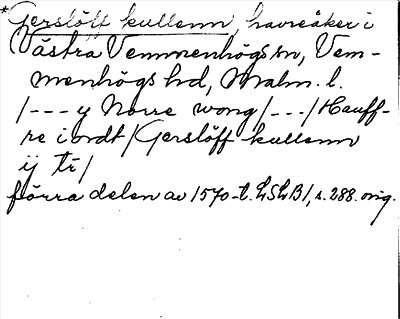 *Gerslöff kullenn, havreåker i
Västra Vemmenhögs sn, Vem-
menhögs hd, Malm. l.
/--- y Norre wong/---/Hauff-
re iordt/Gerslöff kullenn
ij tr/
förra delen av 1570-t. LSLB1, s. 288. orig.